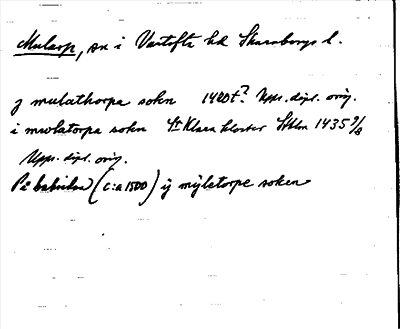 Mularp, sn i Vartofta hd Skaraborgs l.
j mulathorpa sokn 1400t? Upps. dipl. orig.
i mwlatorpa sokn St Klara kloster Sthlm 1435 9/8
Upps. dipl. orig.
På baksidan (c:a 1500) ij myletorpe soken